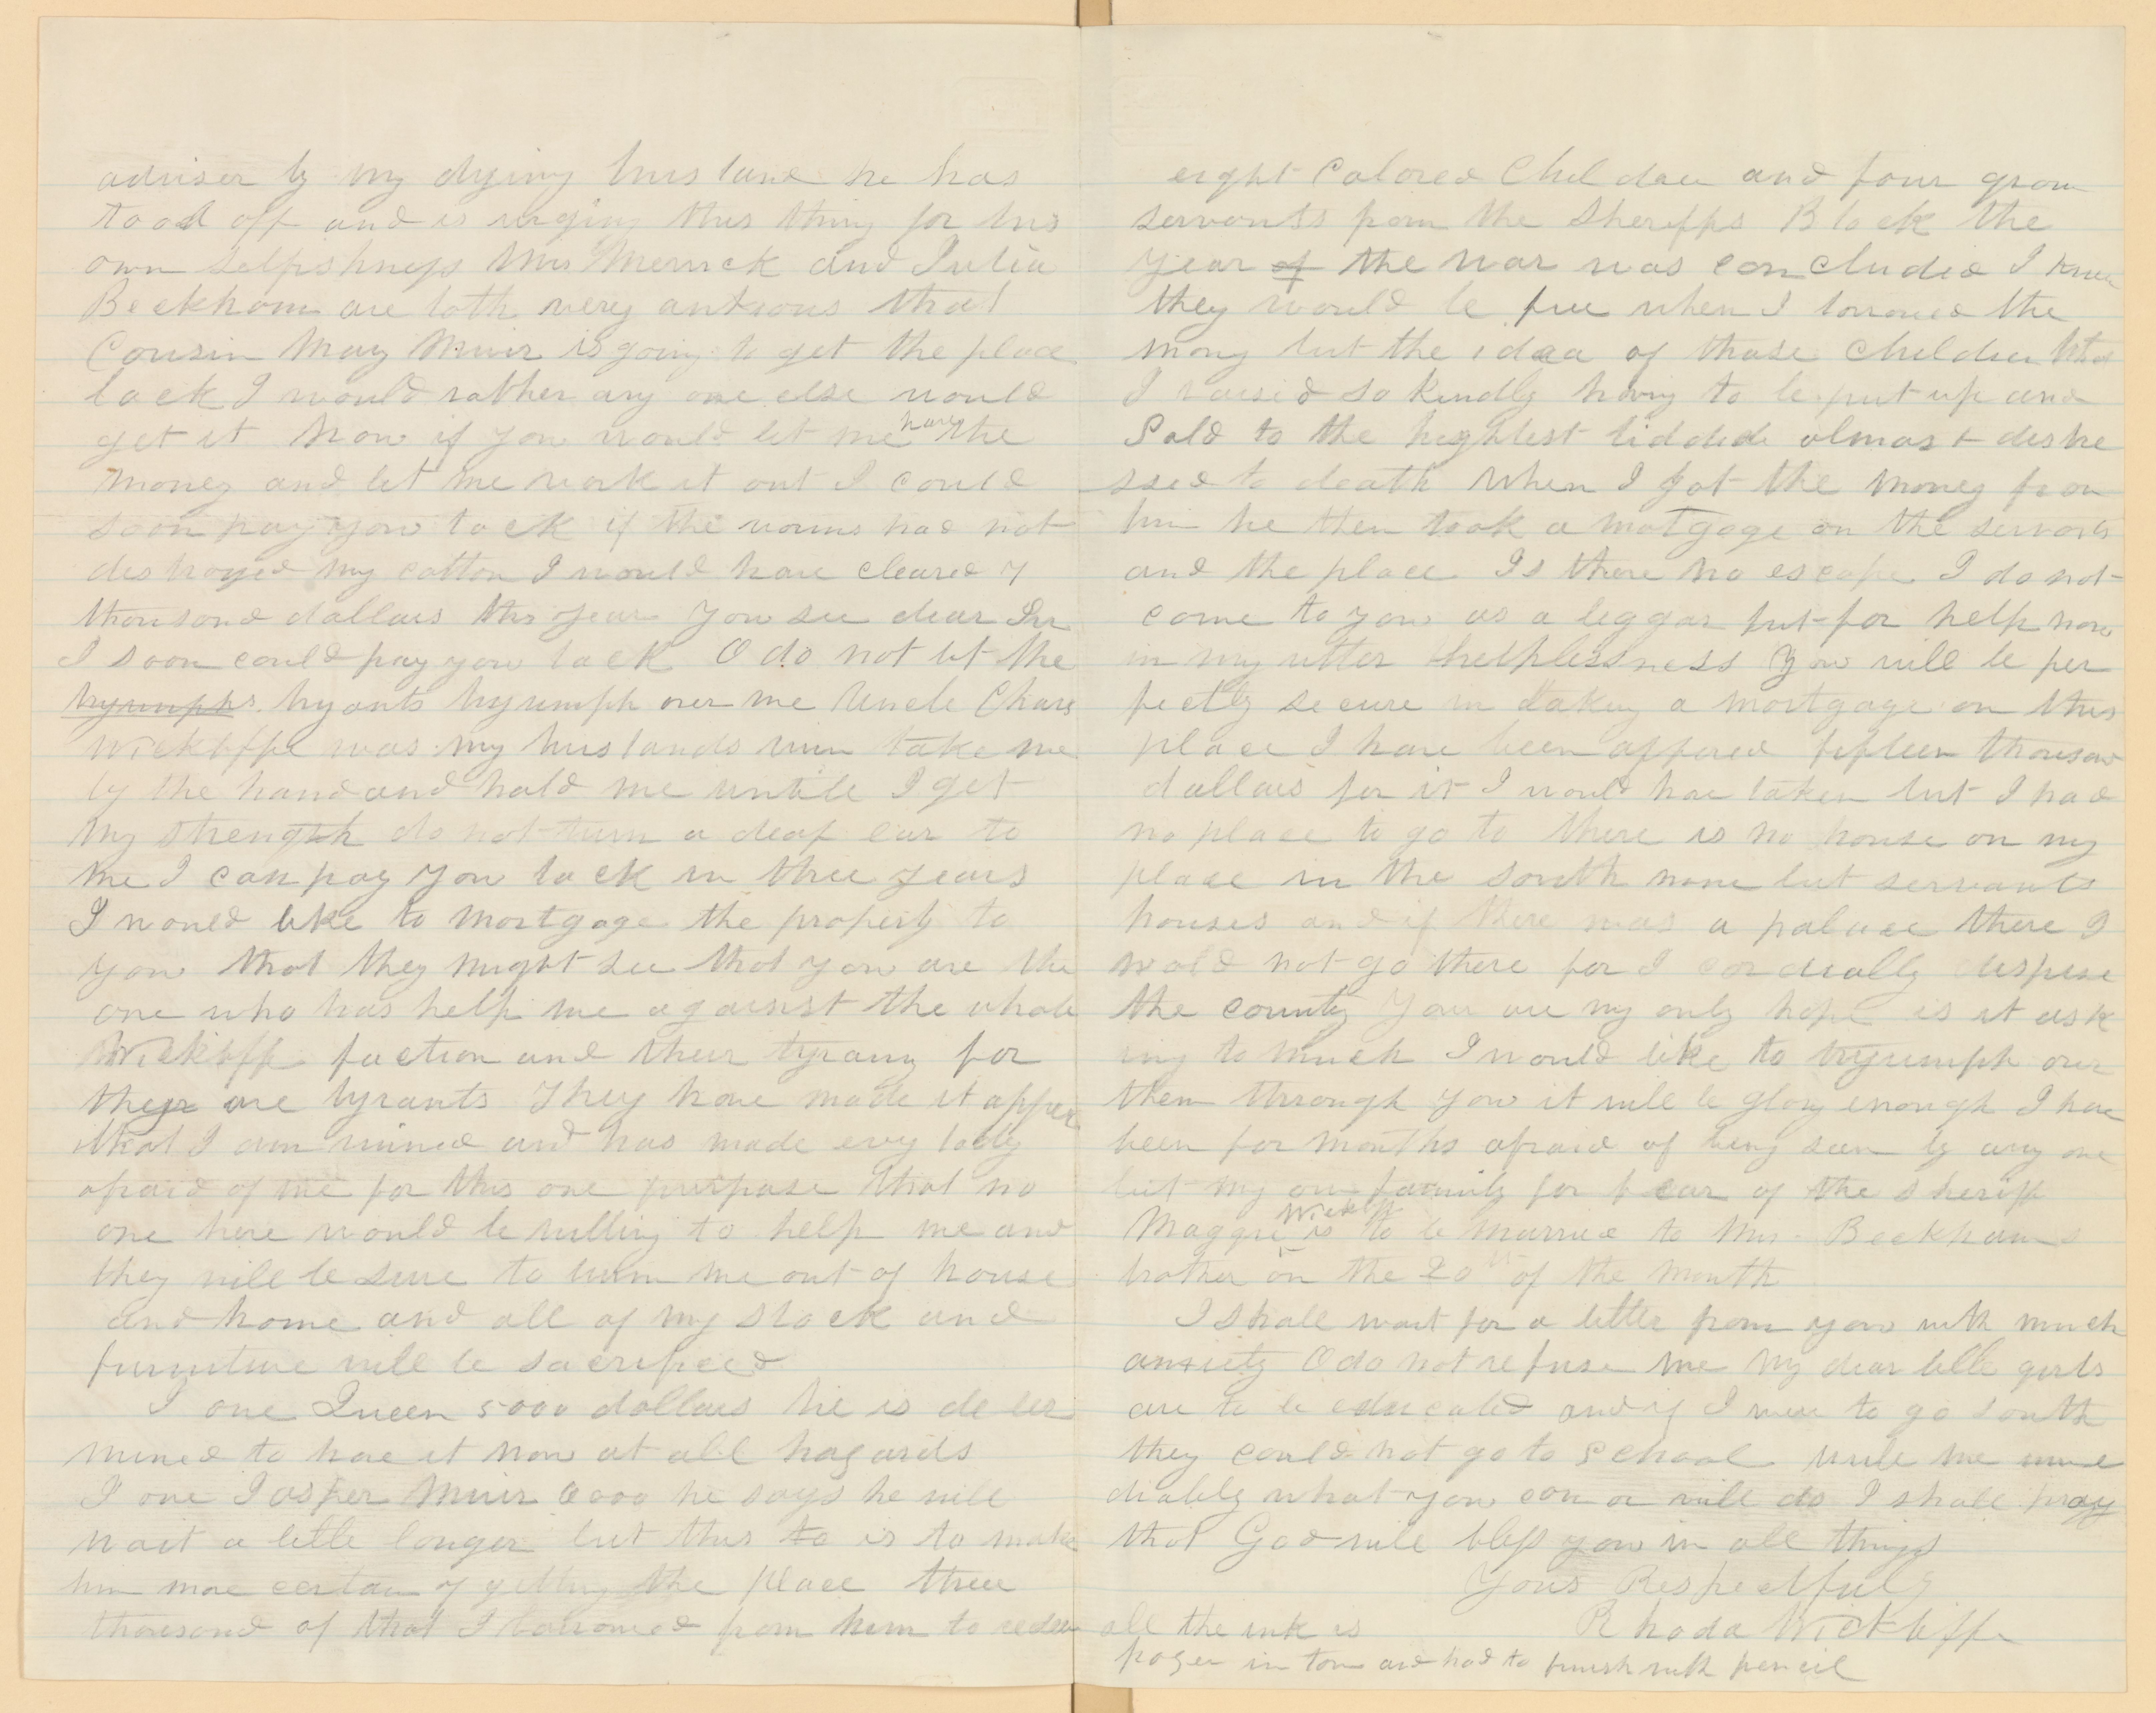 adviser by my dying husband he has
tood off and is urging this thing for his
own selfishness Mrs Merrick and Julia
Beckham are both very antxious that
Cousin May Muir is going to get the place
back I would rather any one else would
get it Now if you would let me have the
money and let me work it out I could
soon pay you back if the worms had not
destroyed my cotton I would have cleared 7
thousand dollars this year you see dear Sir
I soon could pay you back O do not let the
tryumphs tryants tryumph over me Uncle Chars
Wickliffe was my husbands ruin take me
by the hand and hold me untile I get
my strength do not turn a deaf ear to
me I can pay you back in three years
I would like to mortgage the property to
you that they might see that you are the
one who has help me against the whole
Wickliffe faction and their tyrany for
they are tyrants They have made it apper
that I am ruined and has made evry body
afraid of me for this one purpose that no
one here would be willing to help me and
they will be sure to turn me out of house
and home and all of my stock and
furniture will be sacrificed
I owe Queen 5000 dollars he is deter
mined to have it now at all hazards
I owe Jasper Muir 6000 he says he will
wait a little longer but this to is to make
him more certain of getting the place three
thousand of that I borrowed from him to redeem
eight Colored Children and four grown
servants from the Sheriffs Block the
year of the war was concluded I knew
they would be free when I borrowed the
mony but the idea of those children that
I raised so kindly having to be put up and
Sold to the highest bidded almost distre
ssed to death When I got the money from
him he then took a motgage on the servants
and the place Is there no escape I do not
come to you as a beggar but for help now
in my utter helplessness You will be per
fectly secure in taking a mortgage on this
place I have been offered fifteen thousand
dollars for it I would have taken but I had
no place to go to there is no house on my
place in the South none but servants
houses and if there was a palace there I
wold not go there for I cordially dispise
the county You are my only hope is it ask
ing to much I would like to tryumph over
them through you it will be glory enough I have
been for months afraid of being seen by any one
but my own family for fear of the sheriff
Maggie Wickliff is to be married to Mrs. Beckhams
brother on the 20th of the month
I shall wait for a letter from you with much
anxiety O do not refuse me my dear little girls
are to be educated and if I were to go South
they could not go to school write me imme
diately what you can or will do I shall pray
that God will bless you in all things
Yours Respectfuly
Rhoda Wickliffe
all the ink is
frozen in town and had to finish with pencil